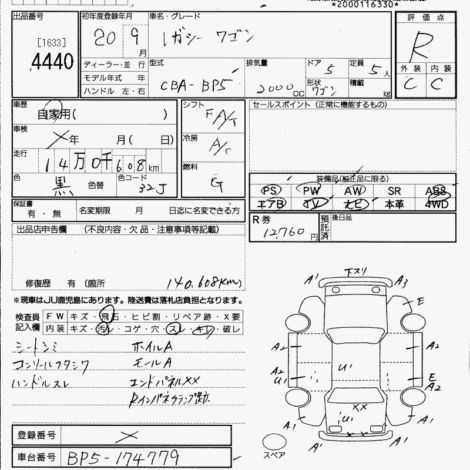 *2000116330*
出品番号
[1633]
4440
初年度登録年月
20年9月
ディーラー・並行
モデル年式 年
ハンドル 左・右
車名・グレード
レガシー ワゴン
型式
CBA-BP5
排気量
2000CC
ドア
5
形状
ワゴン
定員
5人
積載
kg
評価点
R
外装 内装
C C
車歴
自家用( )
車検
×年 月(日)
走行
14万0千608km
色
黒
色替
色コード
32J
シフト
F A/T
冷房
A/C
燃料
G
セールスポイント (正常に機能するもの)
装備品(純正品に限る)
PS PW AW SR ABS
エアB TV ナビ 本革 4WD
保証書
有・無
名変期限 月 日迄に名変できる方
R券
12,760円
預託済
後日品
出品店申告欄 (不良内容・欠品・注意事項等記載)
修復歴 有(箇所
140,608km)
※現車はJU鹿児島にあります。陸送費は落札店負担となります。
検査員記入欄
FW キズ・飛石・ヒビ割・リペア跡・X要
内装 キズ・汚レ・コゲ・穴・スレ・キレ・破レ
シートシミ ホイルA
コンソールフタシワ モールA
ハンドルスレ エンドパネルXX
Rインパネクランプ跡
登録番号
×
車台番号
BP5-174779
下スリ
A1 A3
A1 E
A2 A2
U1
A2 U1 E A2
A1 XX A1
U1
A1 A1
スペア